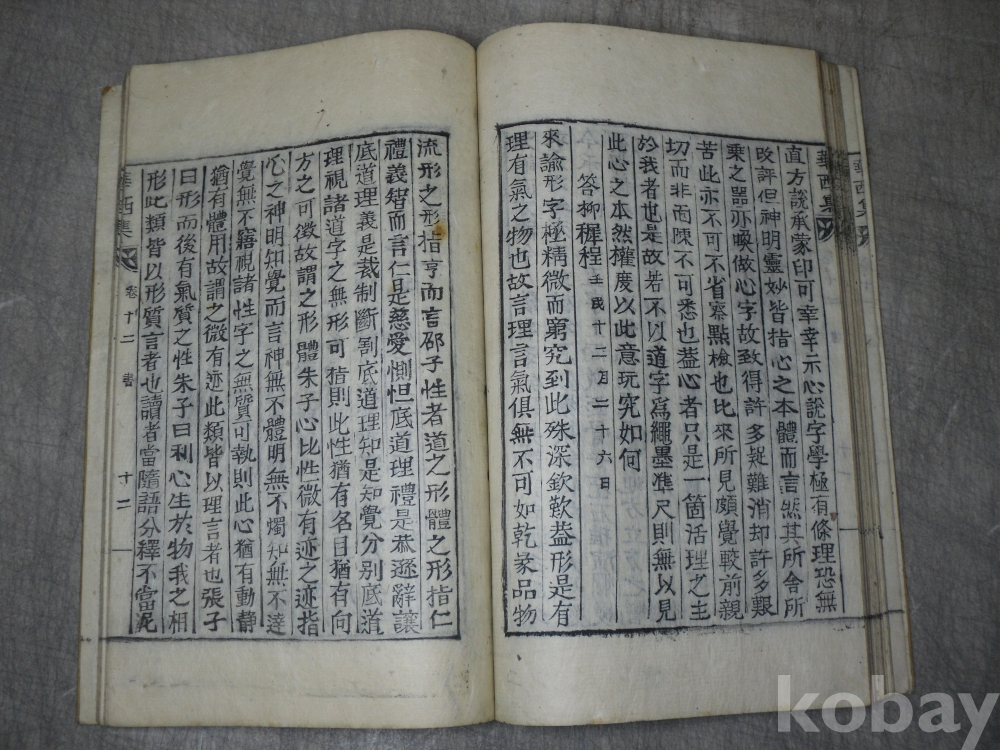 直方說承蒙印可幸幸示心說字學極有條理恐無
改評但神明靈妙皆指心之本體而言然其所舍所
乘之器亦喚做心字故致得許多疑難消却許多艱
苦此亦不可不省察點檢也比來所見頗覺較前親
切而非面陳不可悉也蓋心者只是一箇活理之主
於我者也是故若不以道字爲繩墨準尺則無以見
此心之本然權度以此意玩究如何
答柳穉程 壬戌十二月二十六日
來諭形字極精微而窮究到此殊深欽歎益形是有
理有氣之物也故言理言氣俱無不可如乾彖品物
流形之形指亨而言邵子性者道之形體之形指仁
禮義智而言仁是慈愛惻怛底道理禮是恭遜辭讓
底道理義是裁制斷割底道理知是知覺分別底道
理視諸道字之無形可指則此性猶有名目猶有向
方之可徵故謂之形體朱子心比性微有迹之迹指
心之神明知覺而言神無不體明無不燭知無不達
覺無不寤視諸性字之無質可執則此心猶有動靜
猶有體用故謂之微有迹此類皆以理言者也張子
曰形而後有氣質之性朱子曰利心生於物我之相
形此類皆以形質言者也讀者當隨語分釋不當泥
華西集 卷十二 書 十二
華西集
kobay